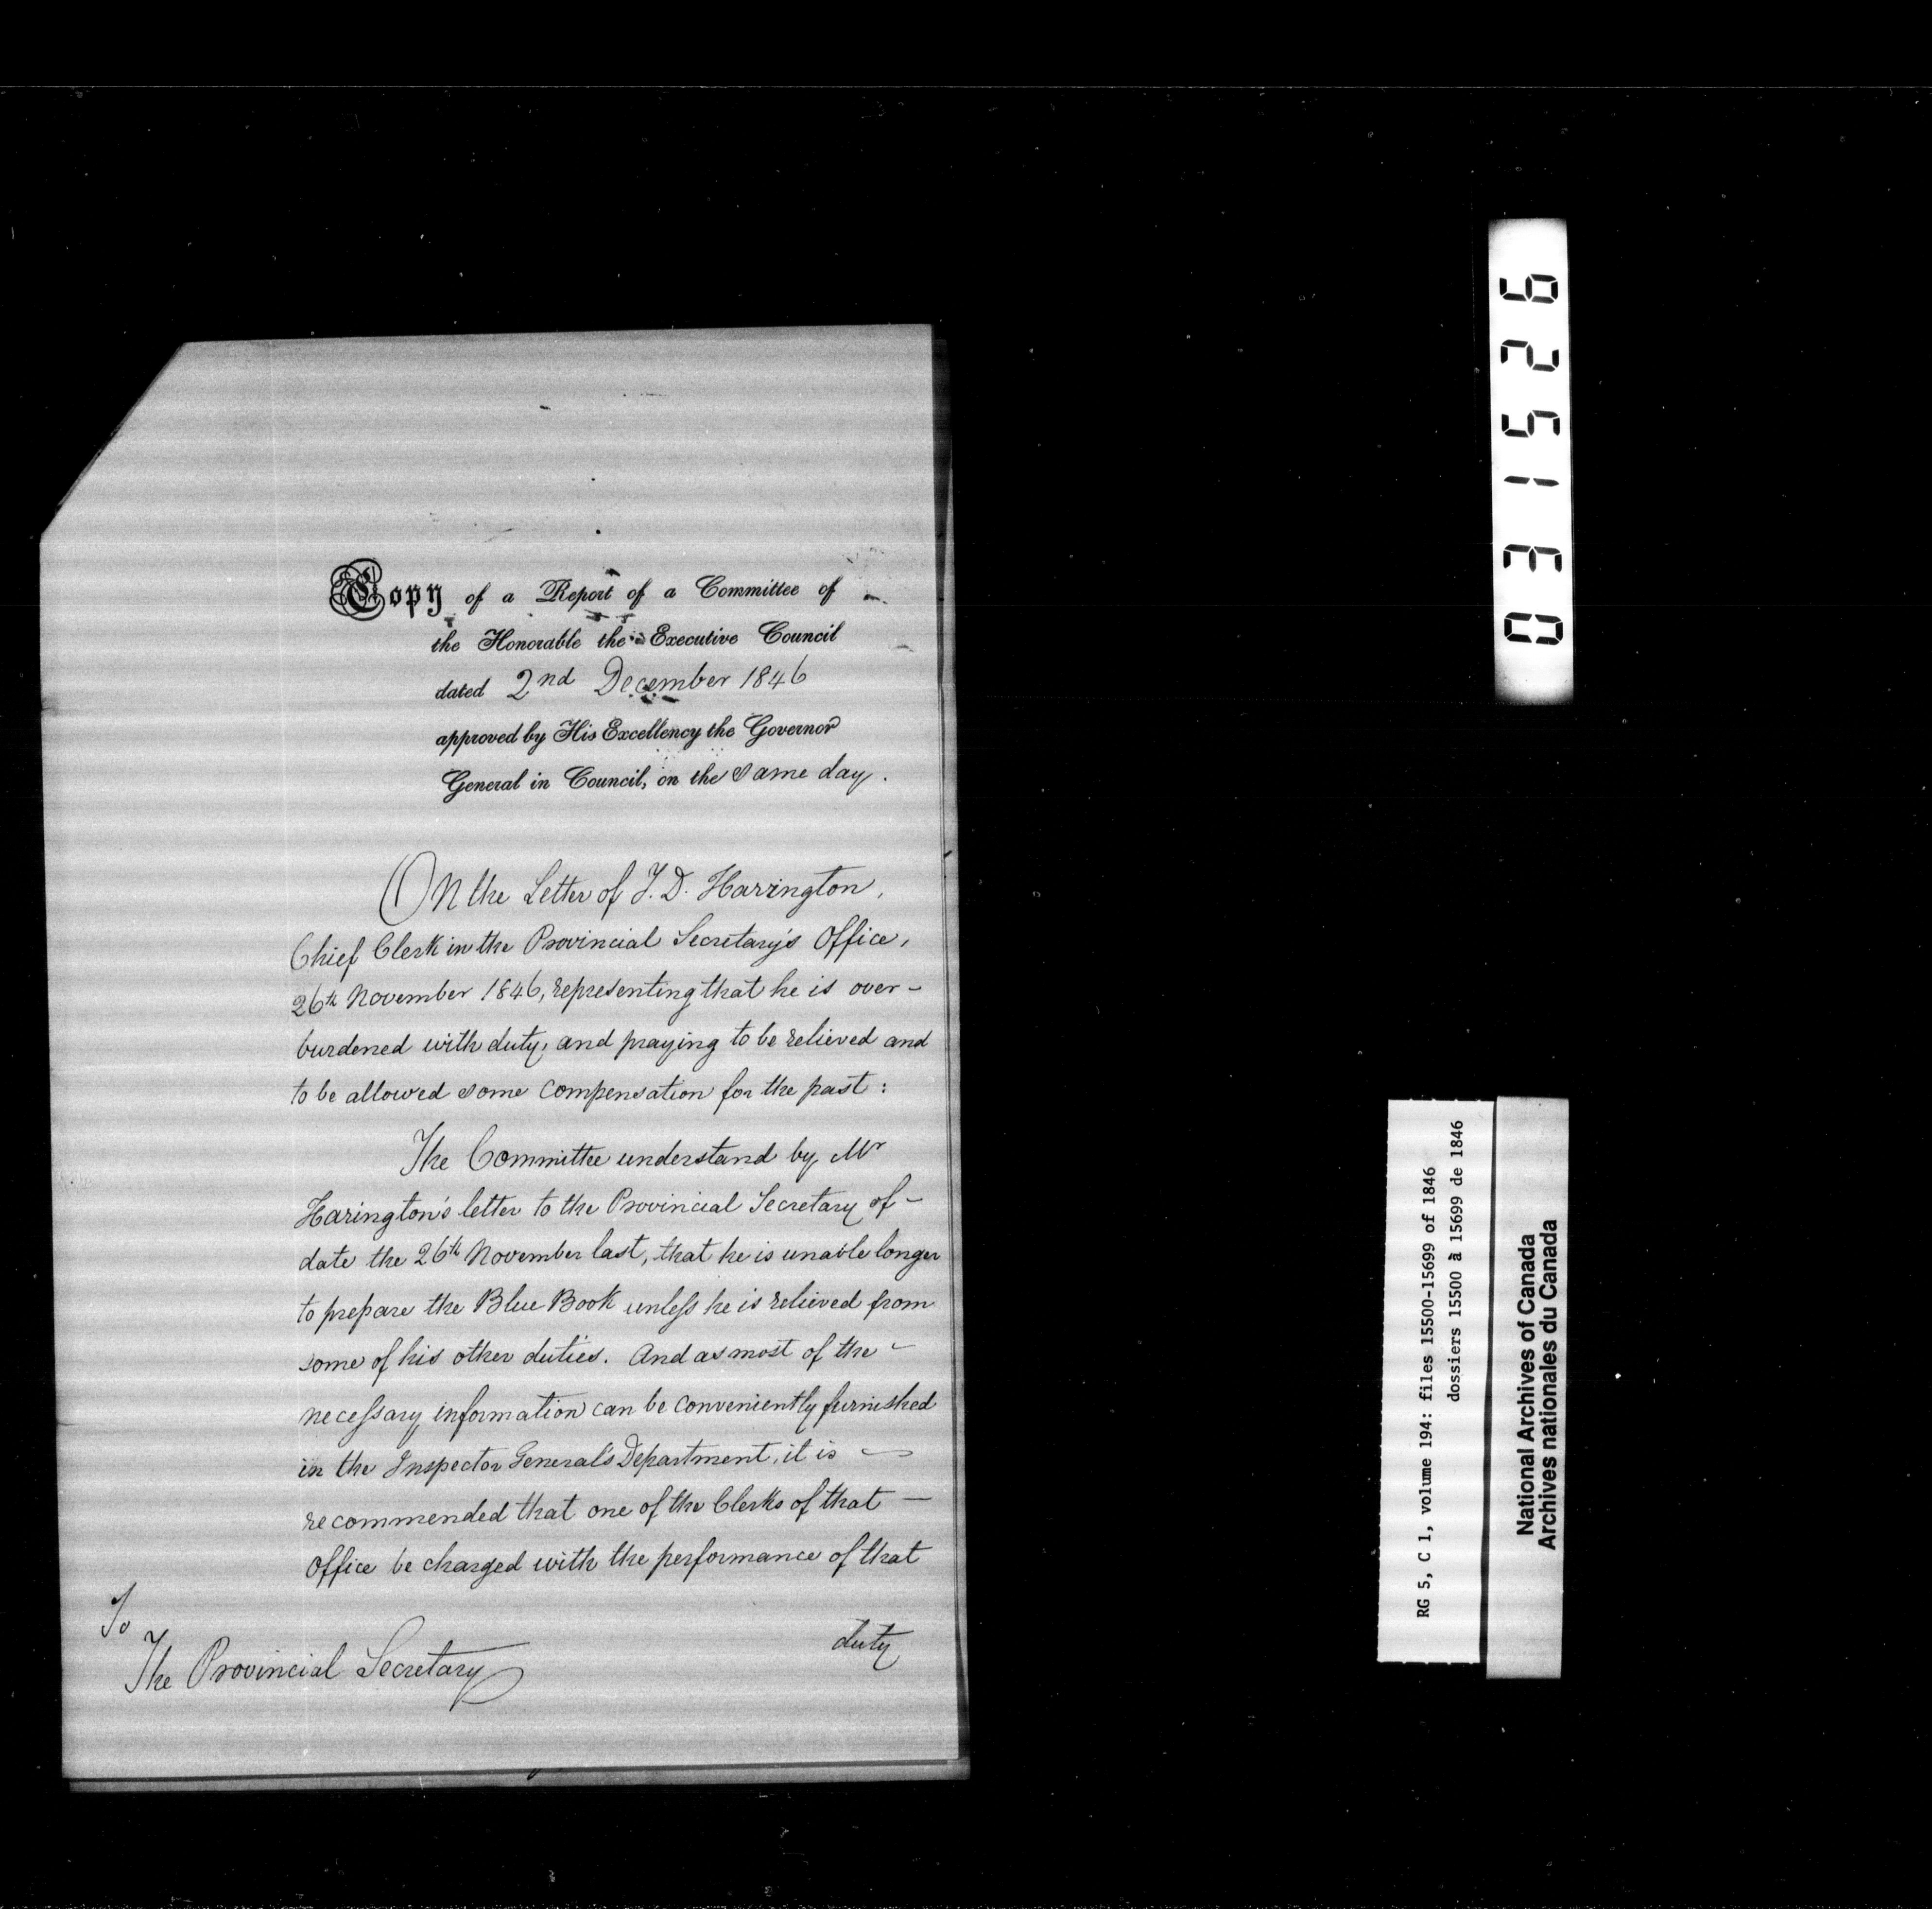 Copy of a Report of a Committee of
the Honorable the Executive Council
dated 2nd December 1846
approved by His Excellency the Governor
General in Council, on the same day.
On the Letter of T. D. Harrington,
Chief Clerk in the Provincial Secretary's Office,
26th November 1846, representing that he is over-
burdened with duty, and praying to be relieved and
to be allowed some compensation for the past:
The Committee understand by Mr
Harington's letter to the Provincial Secretary of
date the 26th November last, that he is unable longer
to prepare the Blue Book unless he is relieved from
some of his other duties. And as most of the
necessary information can be conveniently furnished
in the Inspector General's Department, it is
recommended that one of the Clerks of that
Office be charged with the performance of that
duty
To
The Provincial Secretary
031526
RG 5, C 1, volume 194: files 15500-15699 of 1846
dossiers 15500 à 15699 de 1846
National Archives of Canada
Archives nationales du Canada